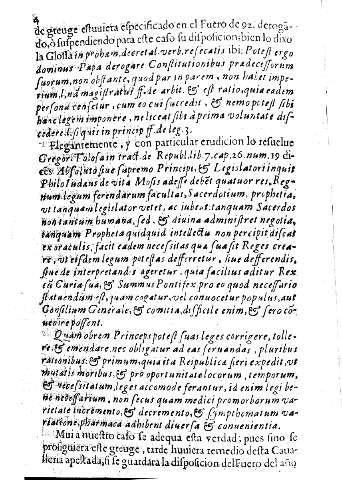 4
de greuge estuuiera especificado en el Fuero de 92. derogã-
do, ò suspendiendo para este caso su disposicion: bien lo dixo
la Glossa in probam. decretal. verb. resecatis ibi: Potest ergo
dominus Papa derogare Constitutionibus prædecessorum
suorum, non obstante, quod par in parem, non habet impe-
rium, l. nã magistratus ff. de arbit. & est ratio, quia eadem
persona censetur, cum eo cui succedit, & nemo potest sibi
hanc legem imponere, ne liceat sibi à prima voluntate dis-
cedere. l. si quis in princip ff. de leg. 3.
Elegantemente, y con particular erudicion lo resuelue
Gregor. Tolosa in tract. de Republ. lib. 7. cap. 26. num. 19 di-
ces: Absoluto siue supremo Principi, & Legislatori inquit
Philo Iudæus de vita Mosis adesse debet quatuor res, Reg-
num legum ferendarum facultas, Sacerdotium, prophetia,
vt tanquam legislator vetet, ac iubeat, tanquam Sacerdos
non tantum humana, sed, & diuina administret negotia,
tanquam Propheta quidquid intellectu non percipit discat
ex oraculis, facit eadem necessitas qua suasit Reges crea-
re, vt eisdem legum potestas defferretur, siue defferendis,
siue de interpretandis ageretur. quia facilius aditur Rex
eũ Curia sua, & Summus Pontifex pro eo quod necessario
statuendum est, quam cogatur, vel conuocetur populus, aut
Consilium Generale, & comitia, difficile enim, & sero cõ-
uenire possent.
Quamobrem Princeps potest suas leges corrigere, tolle-
re, & emendare nec obligatur ad eas seruandas, pluribus
rationibus: & primum, quia ita Reipublica fieri expedit, vt
mutatis moribus, & pro oportunitate locorum, temporum,
& necessitatum, leges accomode ferantur, id enim legi be-
ne necessarium, non secus quam medici pro morborum va-
rietate incremento, & decremento, & symphomatum va-
riatione, pharmaca adhibent diuersa & conuenientia.
Mui a nuestro caso se adequa esta verdad; pues sino se
prosiguiera este greuge, tarde huuiera remedio desta Caua-
lleria apestada, si se guardara la disposicion del Fuero del año